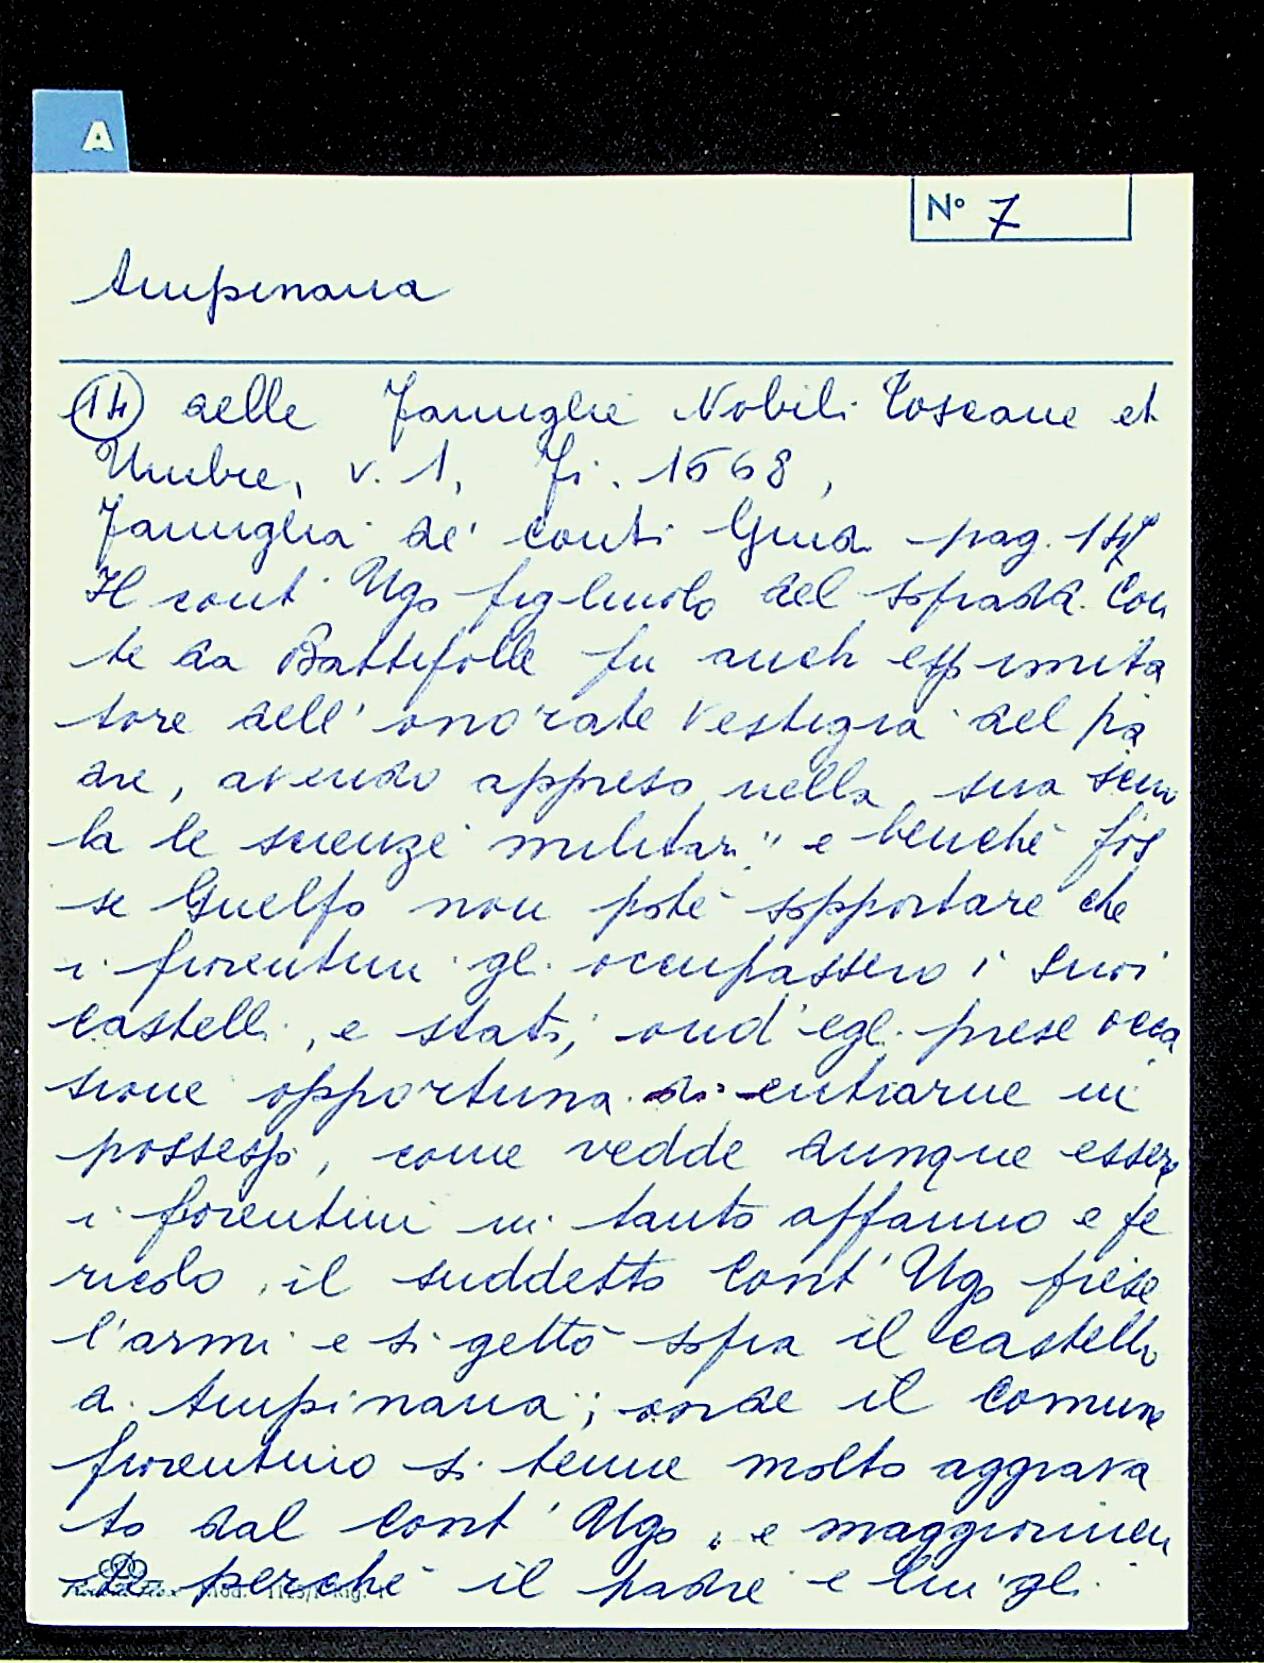 A
N° 7
Ampinana
(14) delle Famiglie Nobili Toscane et
Umbre, v. 1, Fi. 1668,
Famiglia de' conti Guidi pag. 14
Il cont' Ugo figliuolo del sopradd. Con
te da Battifolle fu anch'esso imita
tore dell'onorate vestigia del pa
dre, avendo appreso nella sua scuo
la le scienze militari" e benché fos
se Guelfo non poté sopportare che
i fiorentini gl. occupassero i suoi
castelli, e stati; ond'egli prese occa
sione opportuna di entrarne in
possesso, come vedde dunque esser
i fiorentini in tanto affanno e pe
ricolo, il suddetto Cont' Ugo prese
l'armi e si gettò sopra il castello
di Ampinana; onde il Comune
fiorentino si tenne molto aggrava
to dal Cont' Ugo, e maggiormen
te perché il padre e lui gl.